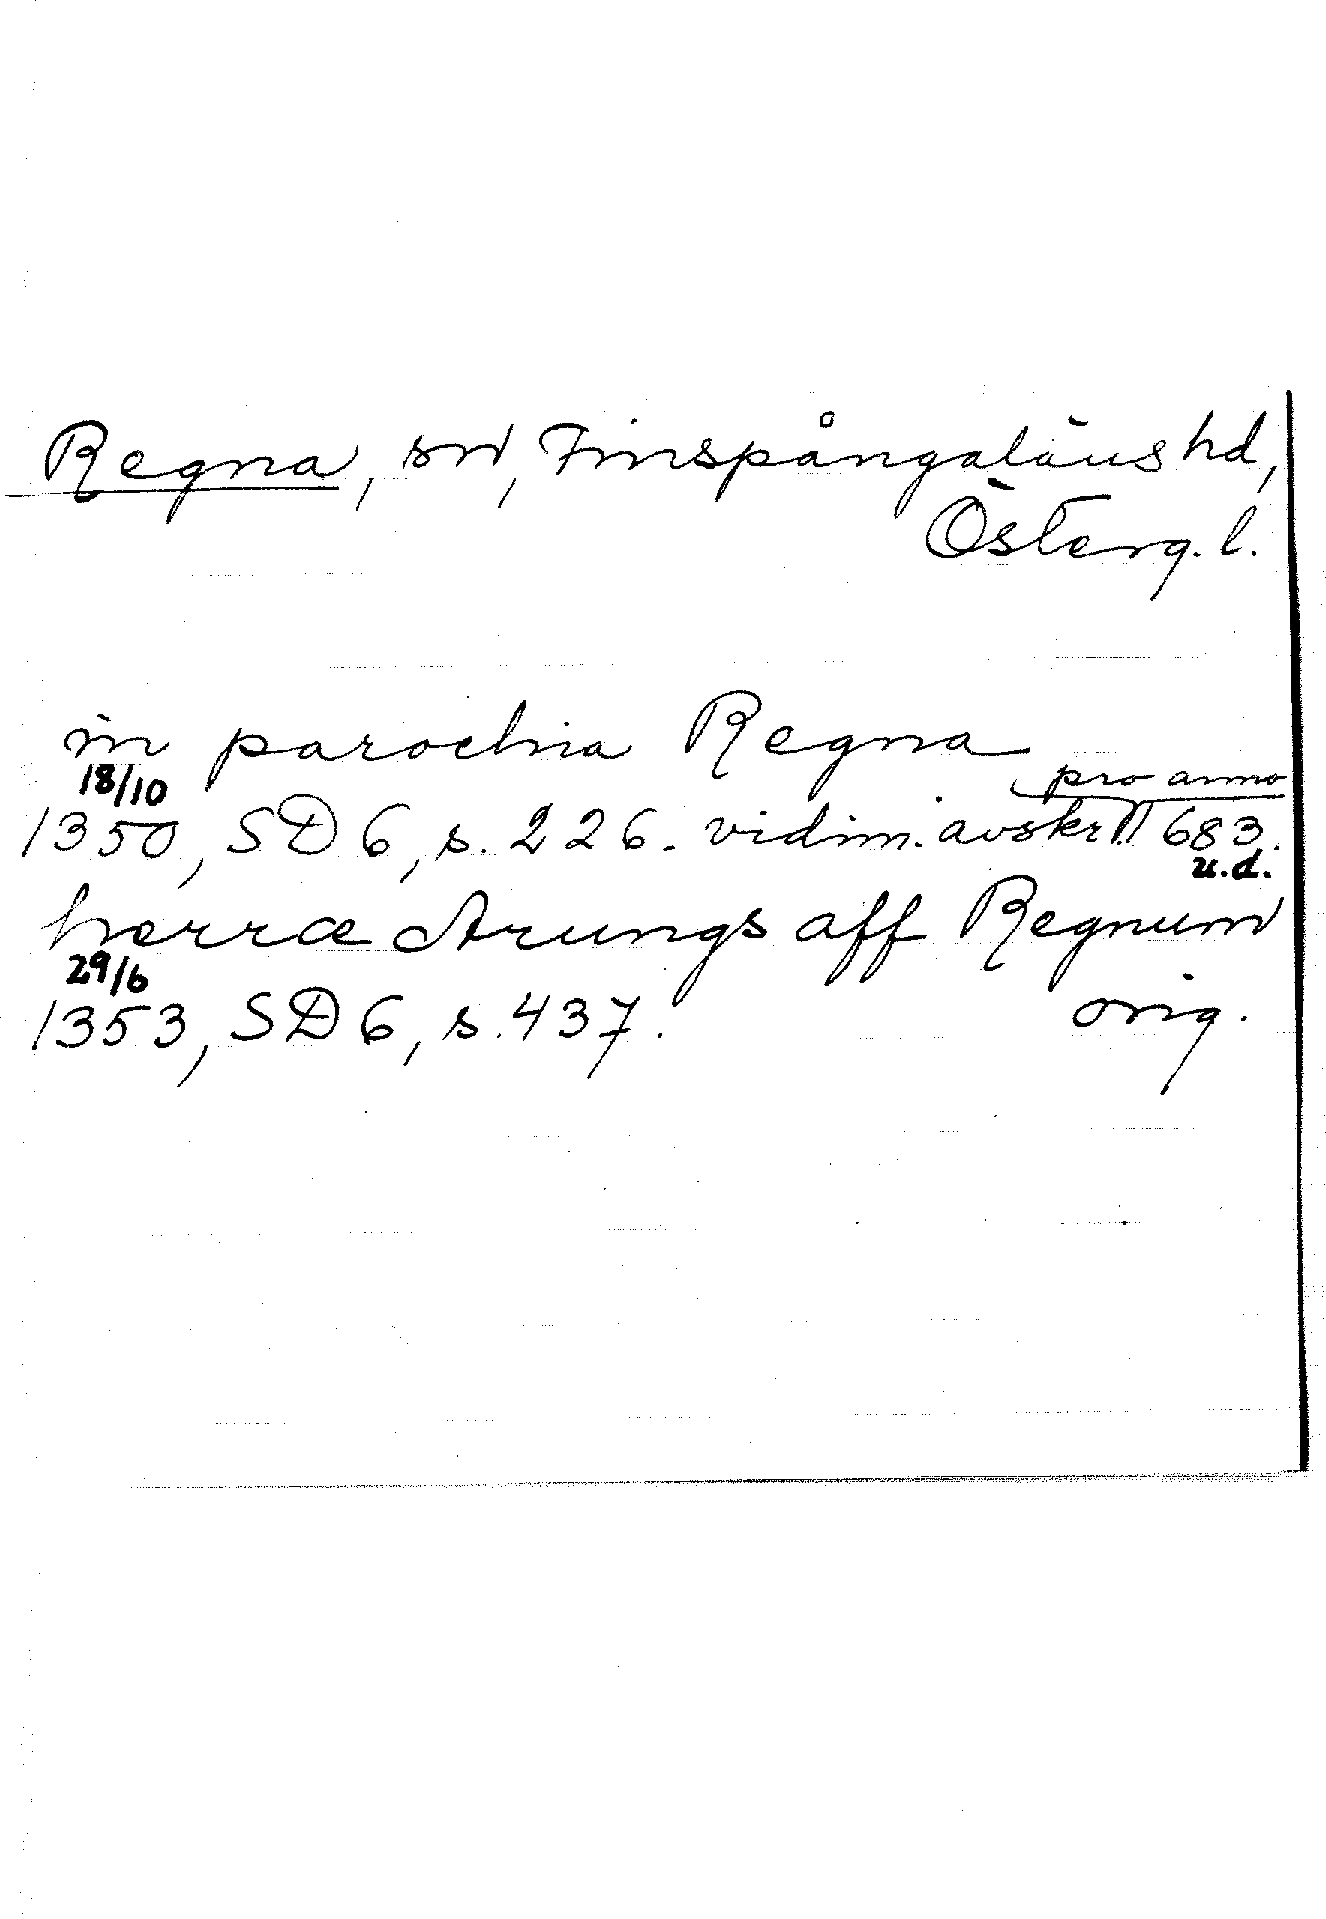 Regna, sn, Finspångaläns hd,
Österg. l.
in parochia Regna
18/10 pro anno
1350, SD 6, s. 226. vidim. avskr. 683.
u.d.
herræ Arungs aff Regnum
29/6
1353, SD 6, s. 437. orig.